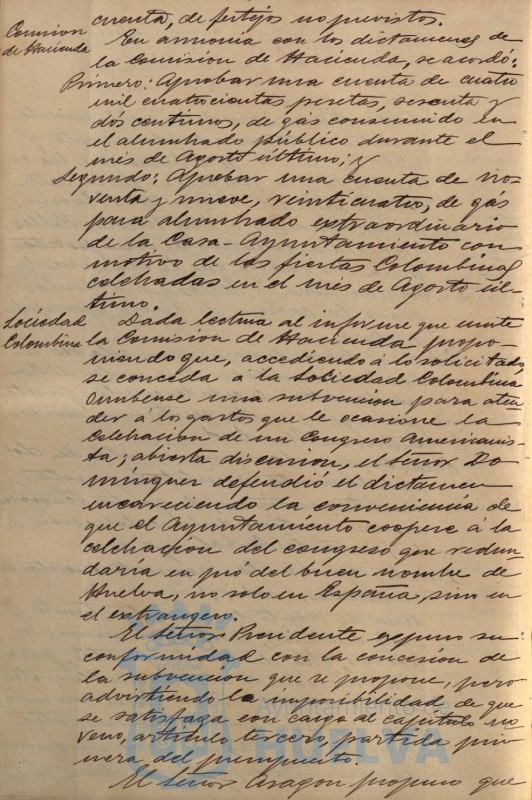 cuenta, de festejos no previstos.
Comision
de Hacienda
En armonia con los dictamenes de
la Comision de Hacienda, se acordó:
Primero: Aprobar una cuenta de cuatro
mil cuatrocientas pesetas, sesenta y
dós centimos, de gás consumido en
el alumbrado público durante el
més de Agosto último; y
Segundo: Aprobar una cuenta de no-
venta y nueve, veinticuatro, de gás
para alumbrado extraordinario
de la Casa-Ayuntamiento con
motivo de las fiestas Colombinas
celebradas en el més de Agosto úl-
timo.
Sociedad
Colombina
Dada lectura al informe que emite
la Comision de Hacienda propo-
niendo que, accediendo á lo solicitado
se conceda á la Sociedad Colombina
Onubense una subvencion para aten
der á los gastos que le ocasione la
celebracion de un Congreso Americanis-
ta; abierta discusion, el señor Do
minguez defendió el dictamen
encareciendo la conveniencia de
que el Ayuntamiento coopere á la
celebracion del congreso que redun
daria en pró del buen nombre de
Huelva, no solo en España, sino en
el extrangero.
El señor Presidente expuso su
conformidad con la concesion de
la subvencion que se propone, pero
advirtiendo la imposibilidad de que
se satisfaga con cargo al capitulo no-
veno, articulo tercero, partida pri
mera del presupuesto.
El señor Aragon propuso que
Ayuntamiento de
HUELVA